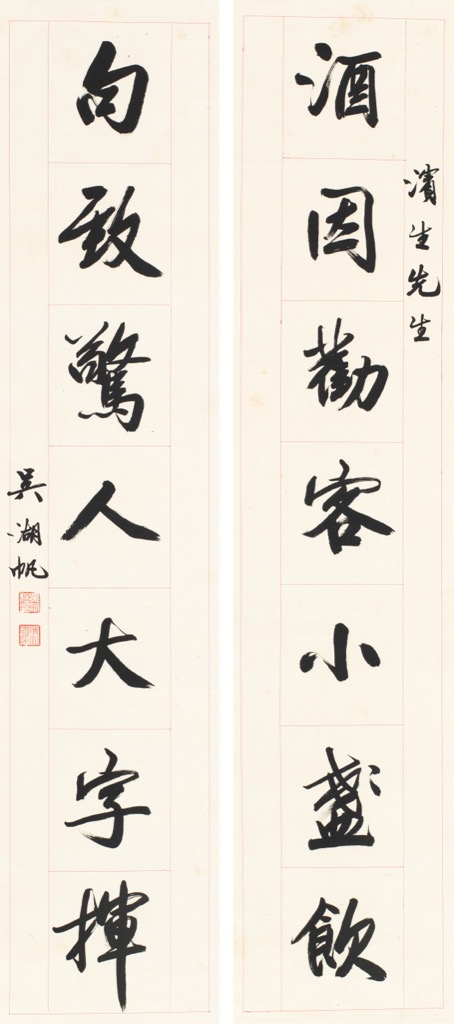 濱生先生
酒因勸客小盞飲
句致驚人大字揮
吳湖帆